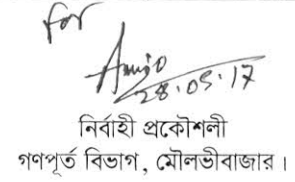 for
28.05.17
নির্বাহী প্রকৌশলী
গণপূর্ত বিভাগ, মৌলভীবাজার।